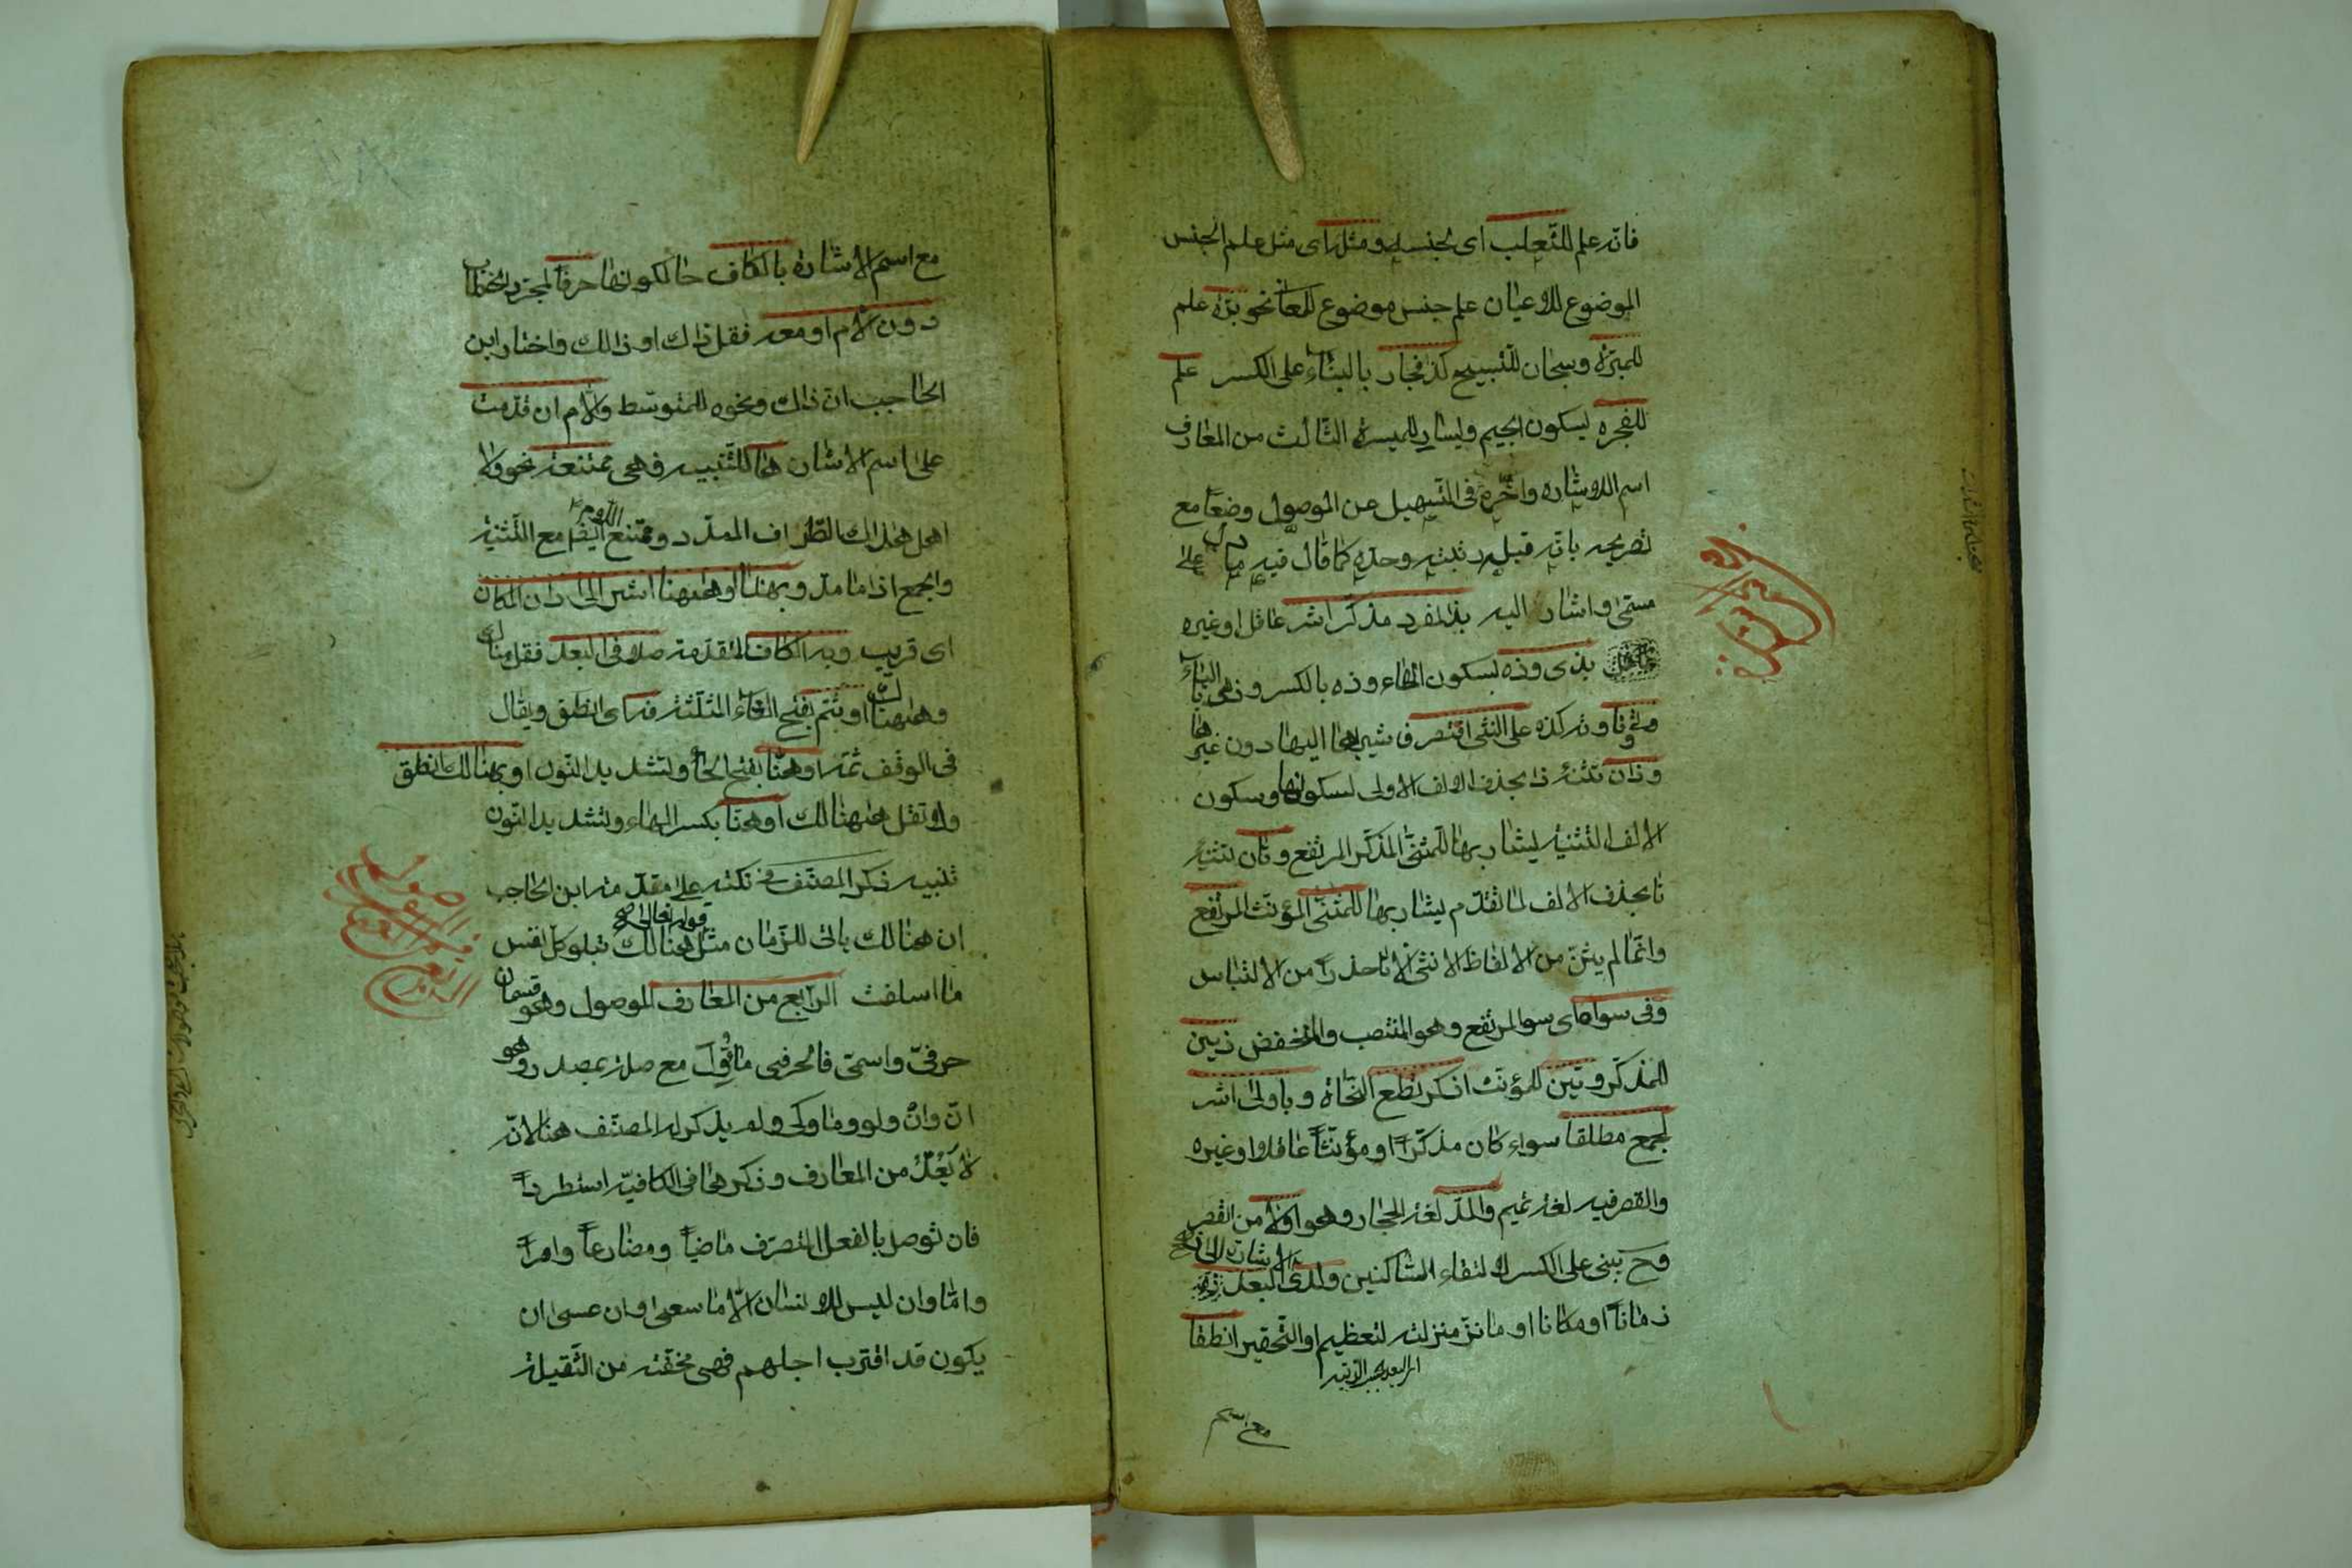 فانه علم للثعلب اى لجنسه ومثله اى مثل علم الجنس
الموضوع للاعيان علم جنس موضوع للمعانى نحو برّه علم
للمبرّة وسبحان للتسبيح كذا فجار بالبناء على الكسر علم
للفجره بسكون الجيم ويسار للميسرة الثالث من المعارف
اسم الاشاره واخّره فى التسهيل عن الموصول وضعًا مع
تصريحه بانه قبله رتبته وحدّه كما قال فيه ما دل على
مسمّى واشارة اليه بذا لمفرد مذكّر اشر عاقل او غيره
بذى وذه بسكون الهاء وذه بالكسر وذهى بالياء
وتى وتا وته كذه على الانثى اقتصر فشير بها اليها دون غيرها
وذان تثنية ذا بحذف الالف الاولى لسكونها وسكون
الالف التثنية يشار بها للمثنّى المذكّر المرتفع وتان تثنية
تا بحذف الالف لما تقدّم يشار بها للمثنّى المؤنث المرتفع
وانّما لم يثنّ من الالفاظ الانثى الا تا حذرًا من الالتباس
وفى سواه اى سوا المرتفع وهو المنتصب والمنخفض ذين
للمذكّر وتين للمؤنث اذكر تطع النحاة وباولى اشر
لجمع مطلقًا سواء كان مذكّرًا او مؤنّثًا عاقلا او غيره
والقصر فيه لغة تميم والمدّ لغة الحجاز وهو اولا من القصر
وح يبنى على الكسر لالتقاء الساكنين ولدى البعد
الاشارة الى
زمانًا او مكانا او ما نزّل منزلته لتعظيم او التّحقير انطقا
مع اسم
مع اسم الاشارة بالكاف حالكونها حرفًا لمجرّد الخطاب
دون لام او معه فقل ذاك او ذلك واختار ابن
الحاجب انّ ذاك ونحوه للمتوسّط ولام ان قدّمت
على اسم الاشارة ها للتّنبيه فهى ممتنعة نحو ولا
اهل هذاك الطّراف الممدّد وممتنع ايضا اللام مع التّثنية
والجمع اذا ما مدّ وبهنا او ههنا اشر الى دان المكان
اى قريبه وبه الكاف المتقدّمة صلا فى البعد فقل هناك
وههناك او بثم بفتح الثاء المثلّثة فه اى انطق ويقال
فى الوقف ثمّه او هنّا بفتح الهاء وتشديد النّون او بهنالك انطق
ولا تقل ههنالك او هنّا بكسر الهاء وتشديد النّون
تنبيه ذكر المصنّف فى نكته على مقدّمة ابن الحاجب
ان هنالك ياتى للزّمان مثل قوله تعالى هنالك تبلو كل نفس
ما اسلفت الرّابع من المعارف الموصول وهو قسمان
حرفىّ واسمىّ فالحرفى ما اُوّل مع صلته بمصدر وهو
انّ وانْ ولو وما وكى ولم يذكره المصنّف هنا لانّه
لا يُعَدّ من المعارف وذكرها فى الكافية استطرادًا
فان توصل بالفعل المتصرّف ماضيًا ومضارعًا وامرًا
وامّا وان ليس للانسان الّا ما سعى وان عسى ان
يكون قد اقترب اجلهم فهى مخفّفة من الثّقيلة